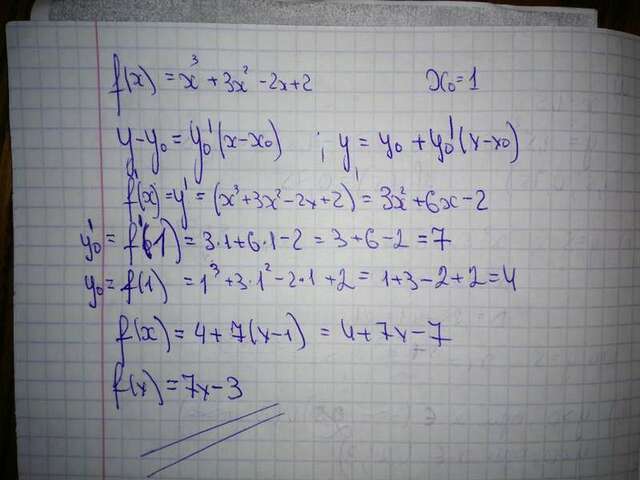 f(x) = x³ + 3x² - 2x + 2      x₀ = 1
y - y₀ = y₀'(x - x₀) ; y = y₀ + y₀'(x - x₀)
f'(x) = y' = (x³ + 3x² - 2x + 2)' = 3x² + 6x - 2
y₀' = f'(1) = 3·1 + 6·1 - 2 = 3 + 6 - 2 = 7
y₀ = f(1) = 1³ + 3·1² - 2·1 + 2 = 1 + 3 - 2 + 2 = 4
f(x) = 4 + 7(x - 1) = 4 + 7x - 7
f(x) = 7x - 3